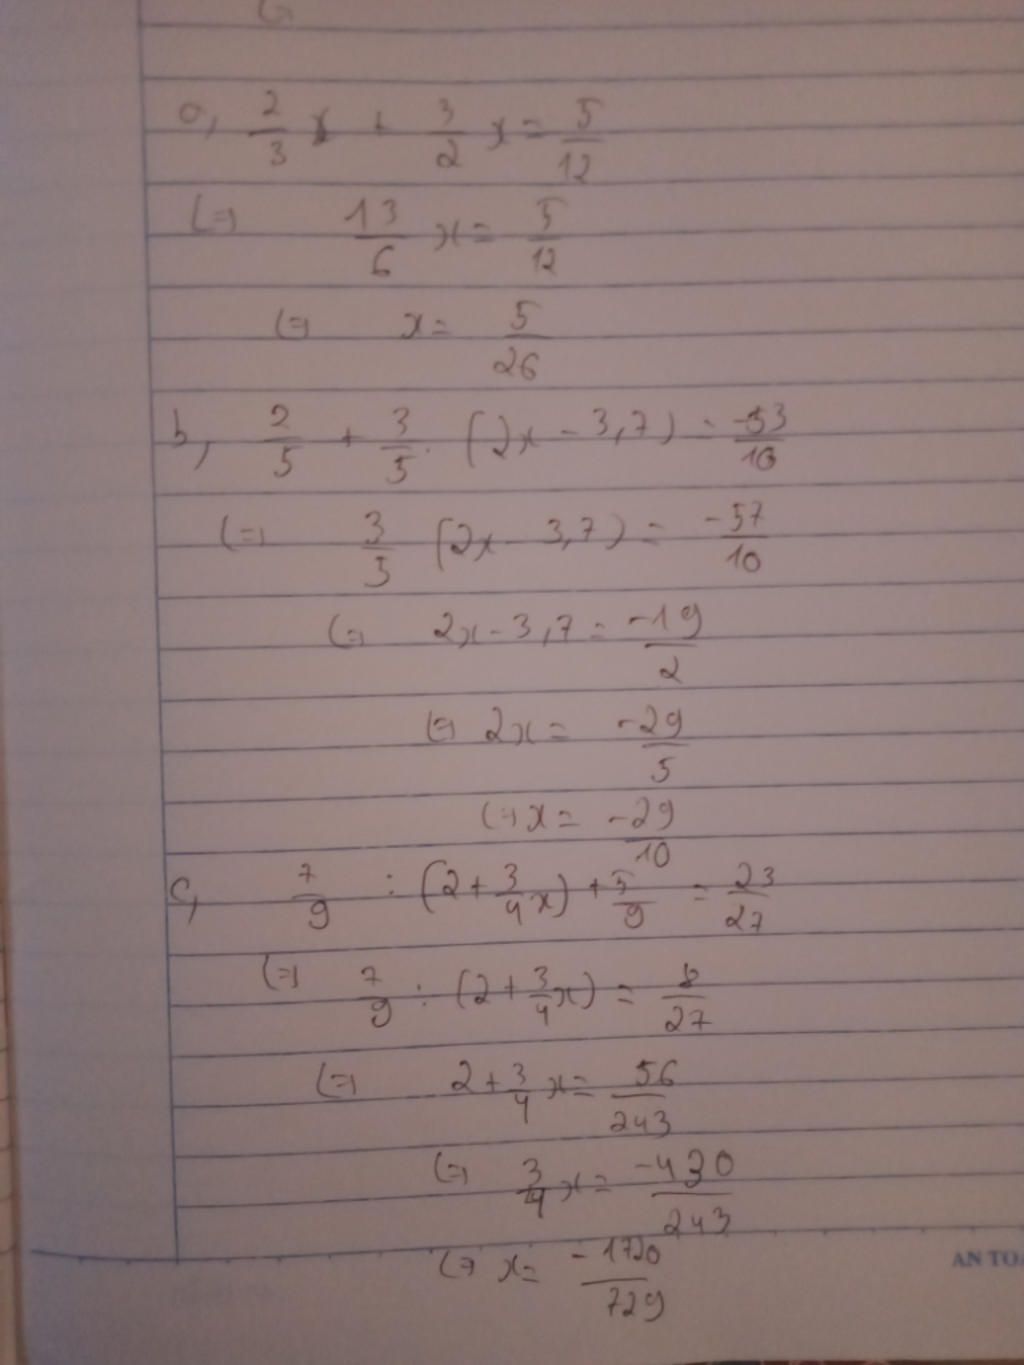 a, 2/3 x + 3/2 x = 5/12
(=) 13/6 x = 5/12
(=) x = 5/26
b, 2/5 + 3/5 . (2x - 3,7) = -53/10
(=) 3/5 (2x - 3,7) = -57/10
(=) 2x - 3,7 = -19/2
(=) 2x = -29/5
(=) x = -29/10
c, 7/9 : (2 + 3/4 x) + 5/9 = 23/27
(=) 7/9 : (2 + 3/4 x) = 8/27
(=) 2 + 3/4 x = 56/243
(=) 3/4 x = -430/243
(=) x = -1720/729
AN TO